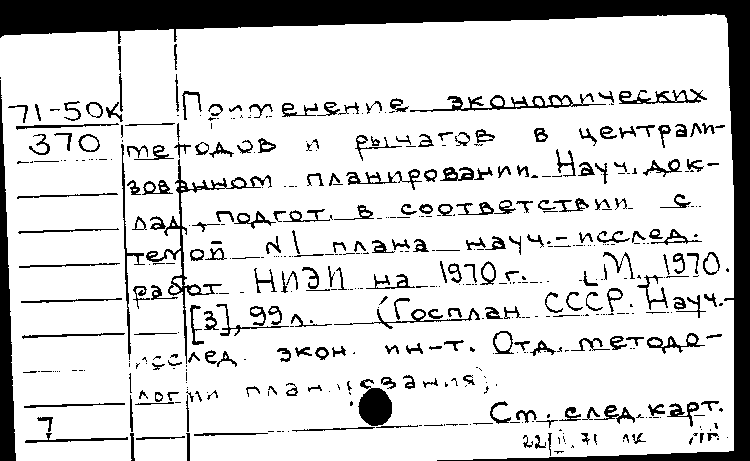 71-50к Применение экономических
370 методов и рычагов в централи-
зованном планировании. Науч. док-
лад, подгот. в соответствии с
темой N1 плана науч.-исслед.
работ НИЭИ на 1970 г. [М., 1970.
[3], 99 л. (Госплан СССР. Науч.-
исслед. экон. ин-т. Отд. методо-
логии планирования).
7 См. след. карт.
22/II.71 лк